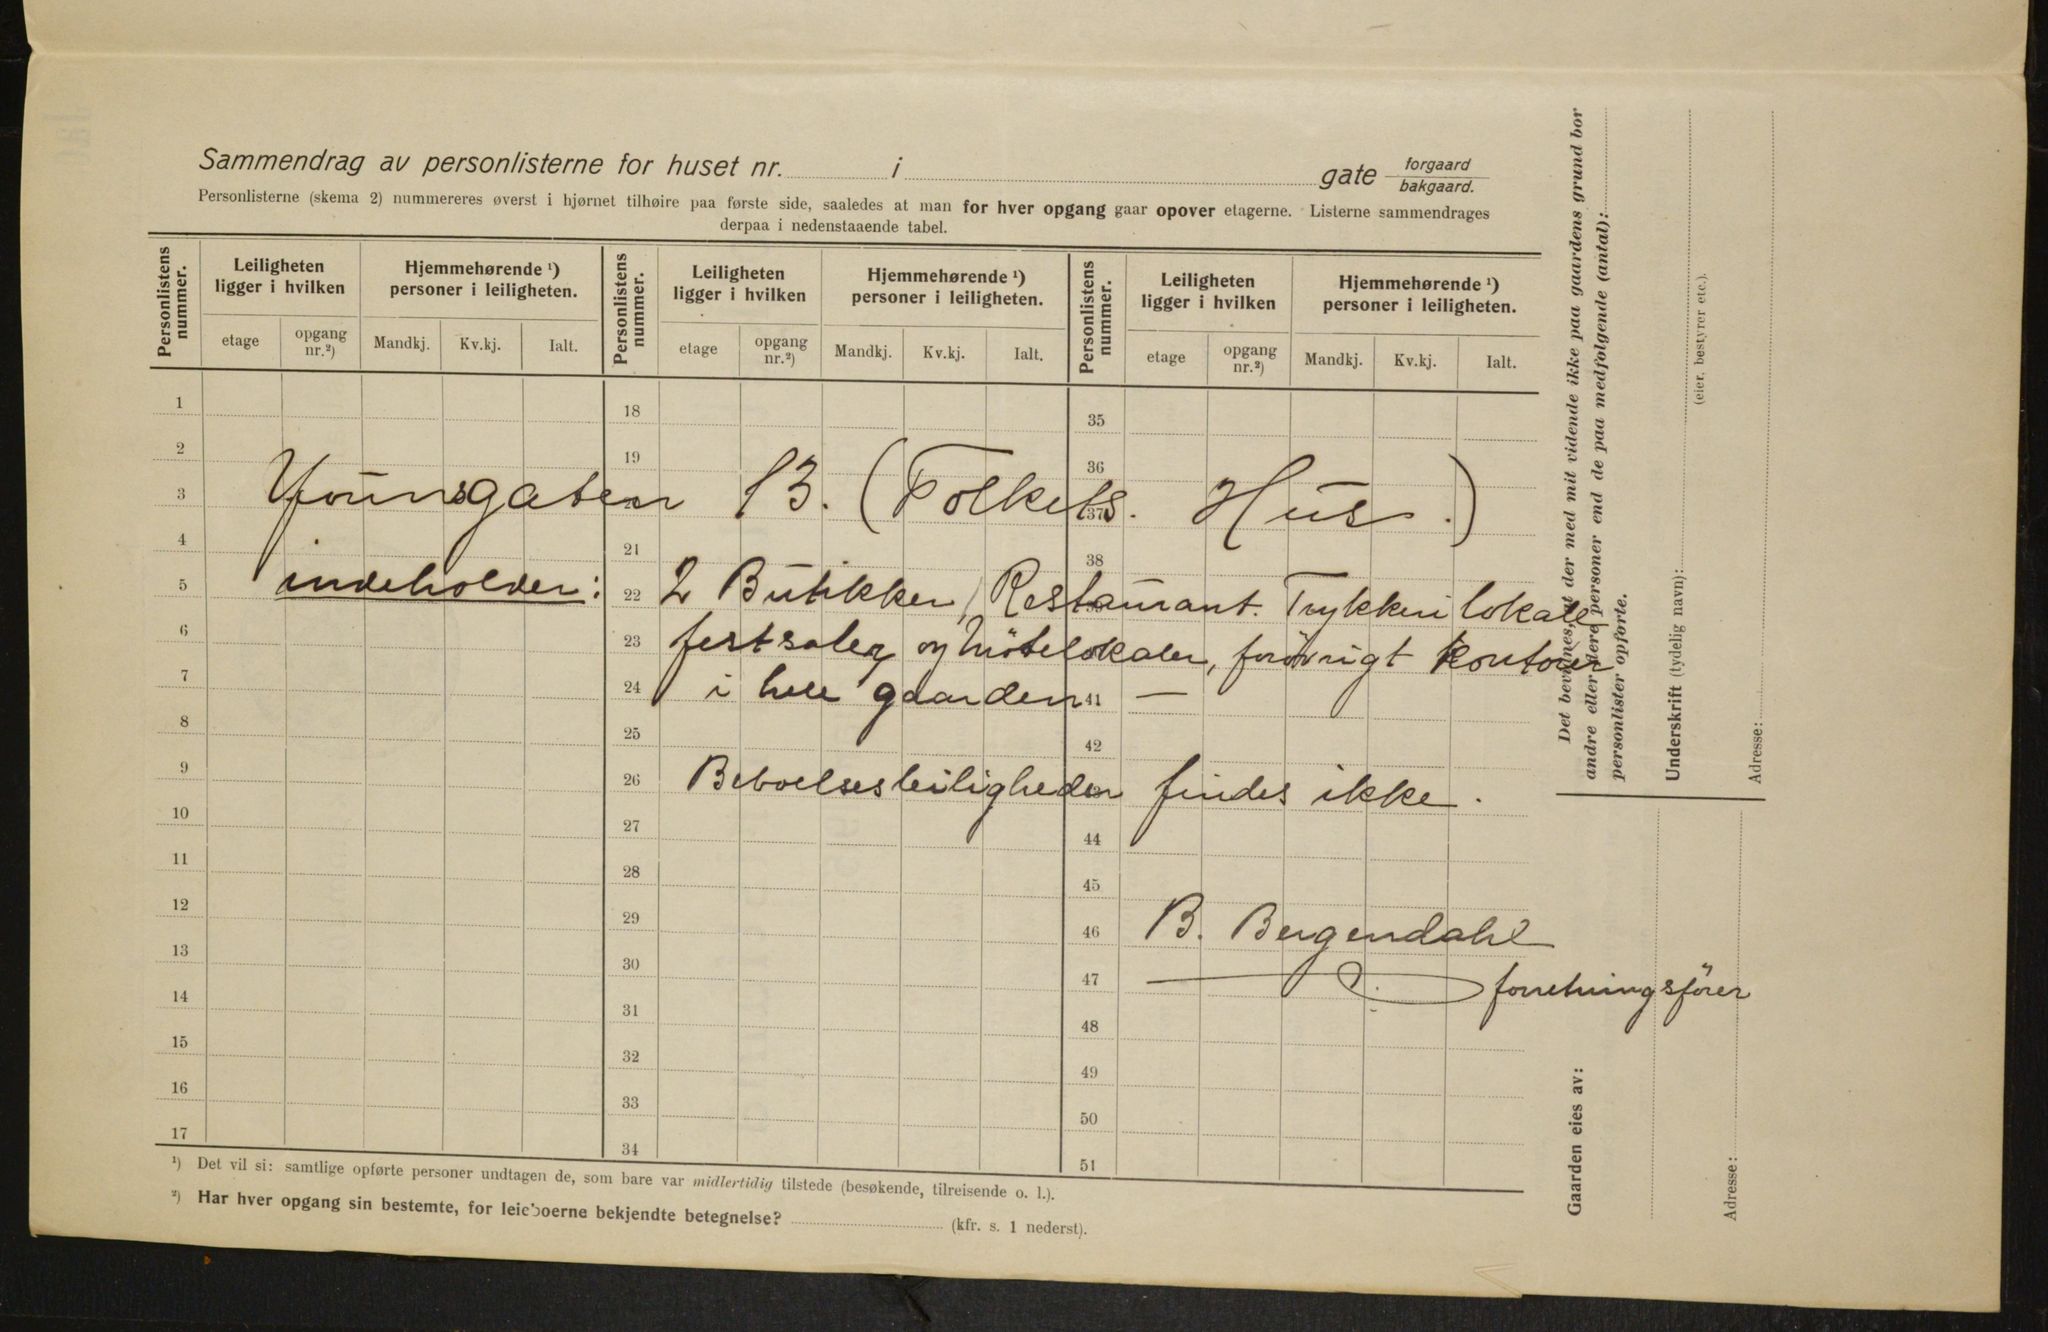 Sammendrag av personlisterne for huset nr. i gate forgaard bakgaard.
Personlisterne (skema 2) nummereres øverst i hjørnet tilhøire paa første side, saaledes at man for hver opgang gaar opover etagerne. Listerne sammendrages
derpaa i nedenstaaende tabel.
Personlistens nummer. Leiligheten ligger i hvilken Hjemmehørende ¹) personer i leiligheten. Personlistens nummer. Leiligheten ligger i hvilken Hjemmehørende ¹) personer i leiligheten. Personlistens nummer. Leiligheten ligger i hvilken Hjemmehørende ¹) personer i leiligheten.
etage opgang nr.²) Mandkj. Kv.kj. Ialt. etage opgang nr.²) Mandkj. Kv.kj. Ialt. etage opgang nr.²) Mandkj. Kv.kj. Ialt.
1 18 35
2 19 36
Youngsgaten 13. (Folkets. Hus.)
3 37
4 21 38
indeholder: 2 Butikker, Restaurant. Trykkeri lokale
5 22
festsaler og Mötelokaler, forövrigt Kontorer
6 23
i hele gaarden —
7 24 41
8 25 42
Beboelsesleiligheder findes ikke.
9 26
10 27 44
11 28 45
12 29 46
B. Bergendahl
13 30 47
forretningsförer
14 31 48
15 32 49
16 33 50
17 34 51
¹) Det vil si: samtlige opførte personer undtagen de, som bare var midlertidig tilstede (besøkende, tilreisende o. l.).
²) Har hver opgang sin bestemte, for leieboerne bekjendte betegnelse? (kfr. s. 1 nederst).
Det bevidnes, at der med mit vidende ikke paa gaardens grund bor
andre eller flere personer end de paa medfølgende (antal):
personlister opførte.
Underskrift (tydelig navn):
(eier, bestyrer etc.).
Adresse:
Gaarden eies av:
Adresse: